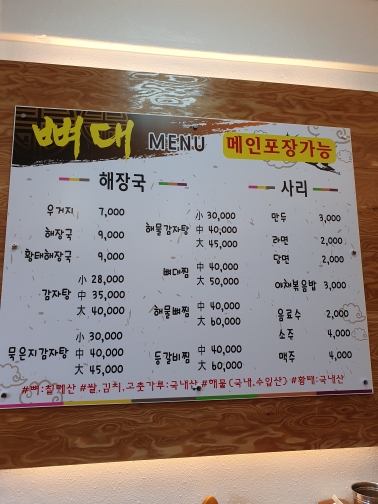 뼈대 MENU 메인포장가능
해장국
우거지 7,000
해장국 9,000
황태해장국 9,000
小 28,000
감자탕 中 35,000
大 40,000
小 30,000
묵은지감자탕 中 40,000
大 45,000
小 30,000
해물감자탕 中 40,000
大 45,000
뼈대찜 中 40,000
大 50,000
해물뼈찜 中 40,000
大 60,000
등갈비찜 中 40,000
大 60,000
사리
만두 3,000
라면 2,000
당면 2,000
야채볶음밥 3,000
음료수 2,000
소주 4,000
맥주 4,000
#뼈:칠레산 #쌀,김치,고춧가루:국내산 #해물(국내,수입산) #황태:국내산